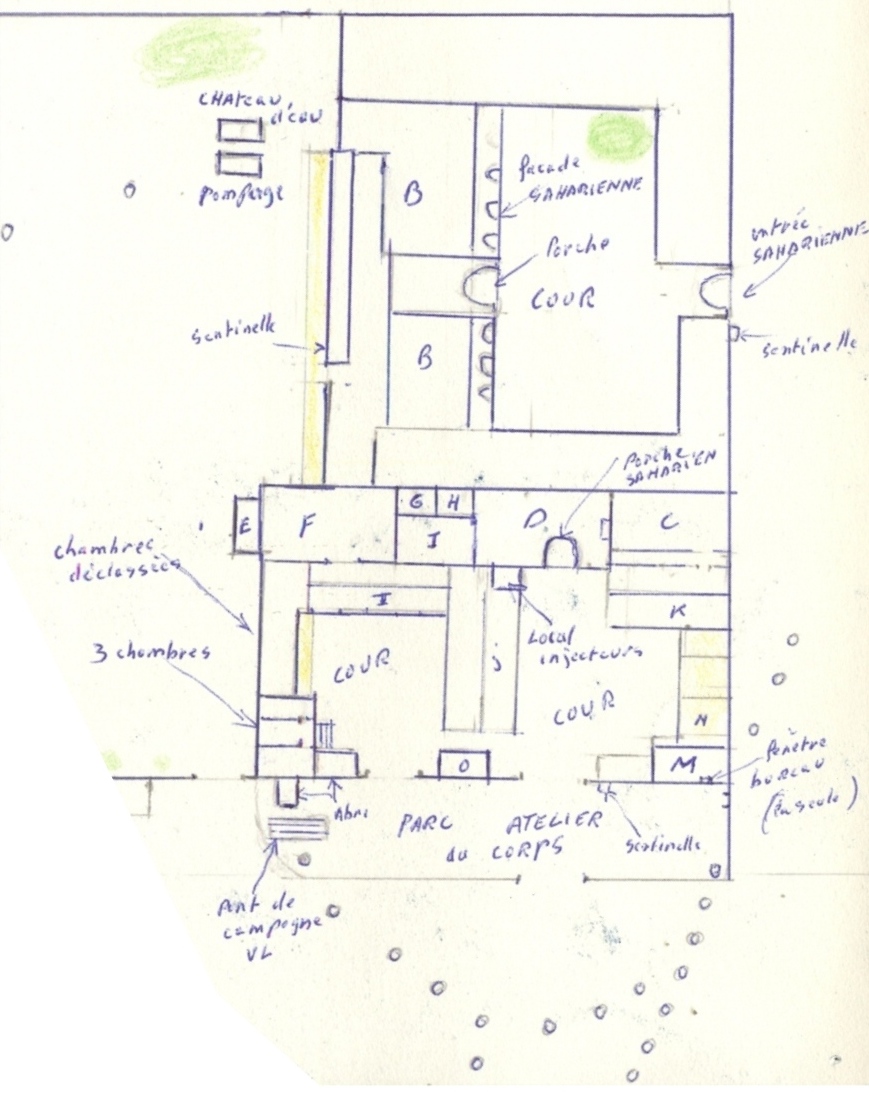 CHATEAU
d'eau
Pompage
B
façade
SAHARIENNE
Porche
COUR
entrée
SAHARIENNE
sentinelle
sentinelle
B
Porche
SAHARIEN
E
F
G
H
I
D
C
chambres
déclassées
I
K
Local
injecteurs
3 chambres
COUR
J
COUR
N
O
M
fenêtre
bureau
Abri
PARC ATELIER
du CORPS
Sentinelle
Pont de
campagne
VL